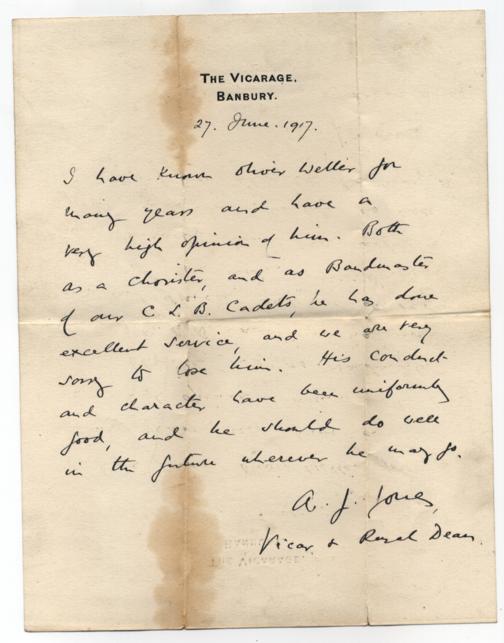 THE VICARAGE,
BANBURY.
27. June. 1917.
I have known Oliver Weller for
many years and have a
very high opinion of him. Both
as a chorister, and as Bandmaster
of our C L B. Cadets, he has done
excellent service, and we are very
sorry to lose him. His conduct
and character have been uniformly
good, and he should do well
in the future wherever he may go.
A. J. Jones,
Vicar & Rural Dean.